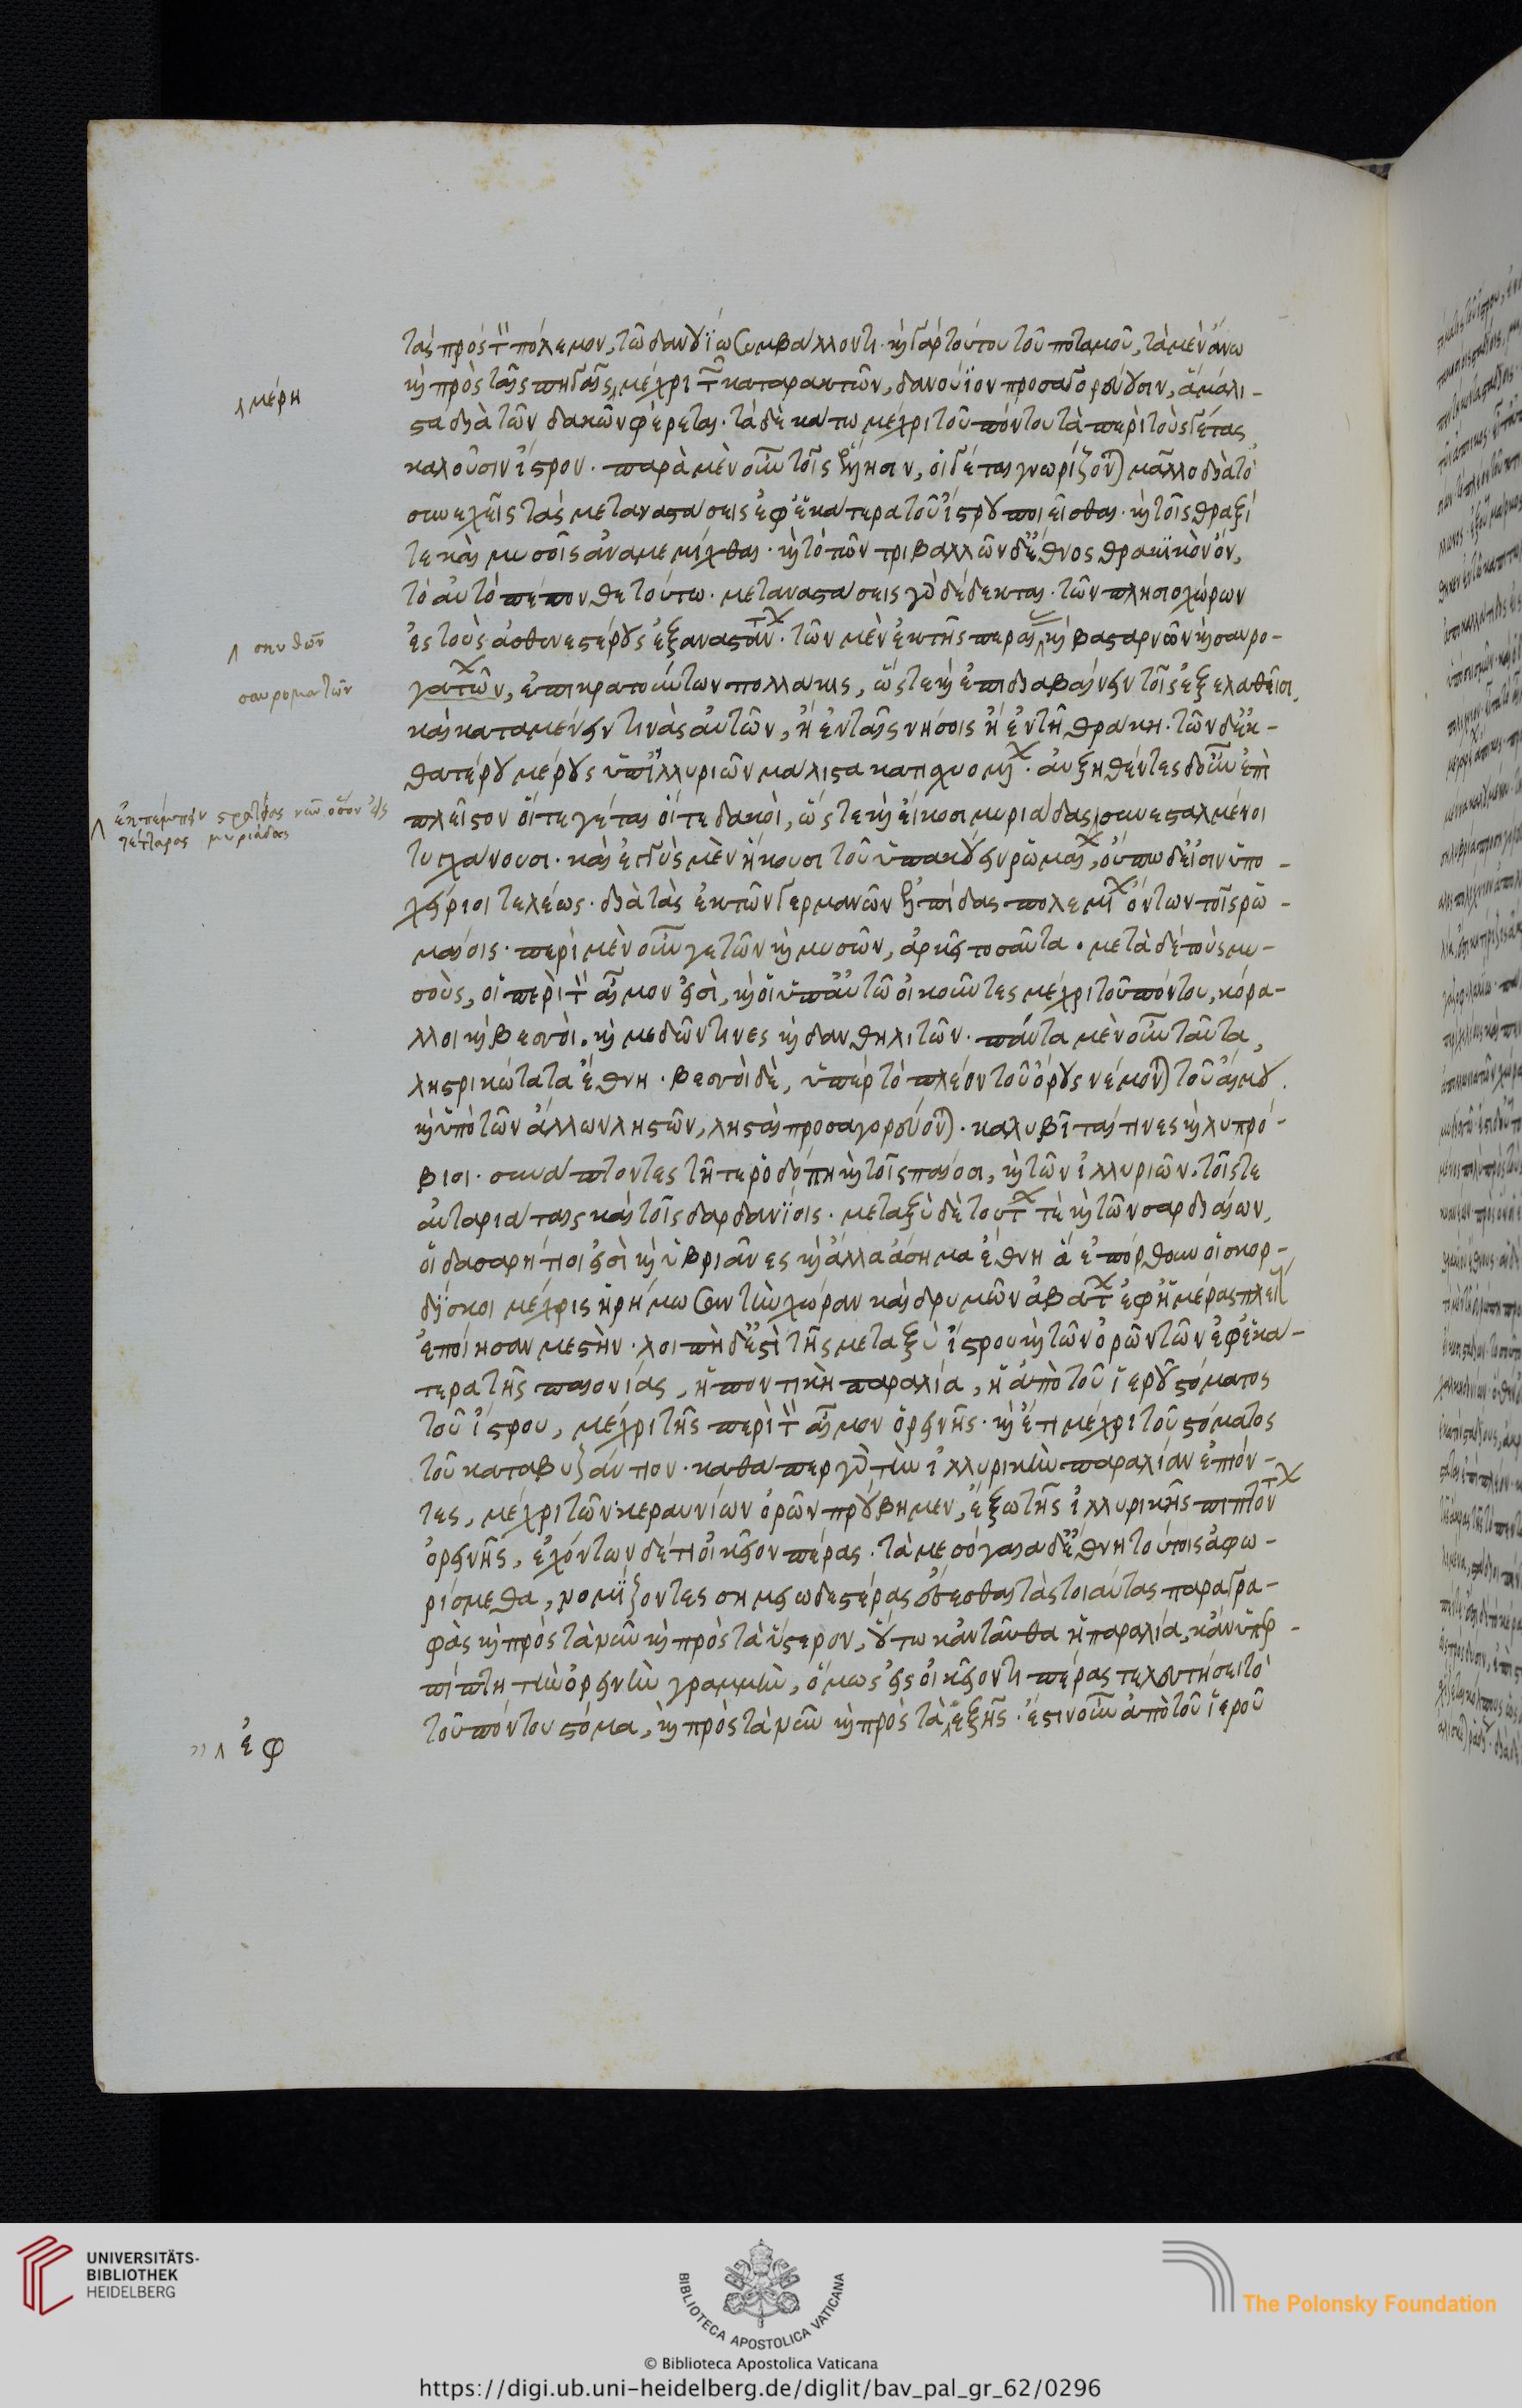 τὰς πρὸς τὸν πόλεμον, τῶ δανουΐω συμβάλλοντι. καὶ γὰρ τούτου τοῦ ποταμοῦ, τὰ μὲν ἄνω
καὶ πρὸς ταῖς πηγαῖς, μέχρι τῶν καταρακτῶν, δανούϊον προσαγορεύουσιν, ἃ μάλι-
στα διὰ τῶν δακῶν φέρεται. τὰ δὲ κάτω μέχρι τοῦ πόντου τὰ περὶ τοὺς γέτας
καλοῦσιν ἴστρον. παρὰ μὲν οὖν τοῖς ἕλλησιν, οἱ γέται γνωρίζονται μᾶλλο διὰ τὸ
συνεχεῖς τὰς μεταναστάσεις ἐφ' ἑκάτερα τοῦ ἴστρου ποιεῖσθαι. καὶ τοῖς θραξί
τε καὶ μυσοῖς ἀναμεμίχθαι. καὶ τὸ τῶν τριβαλλῶν δ' ἔθνος θρακικὸν ὄν,
τὸ αὐτὸ πέπονθε τοῦτο. μεταναστάσεις γὰρ δέδεκται. τῶν πλησιοχώρων
ἐς τοὺς ἀσθενεστέρους ἐξαναστάντ. τῶν μὲν ἐκ τῆς περαίας καὶ βασταρνῶν καὶ σαυρο-
γατῶν, ἐπικρατούντων πολλάκις, ὥστε καὶ ἐπιδιαβαίνειν τοῖς ἐξελαθεῖσι,
καὶ καταμένειν τινὰς αὐτῶν, ἢ ἐν ταῖς νήσοις ἢ ἐν τῇ θράκη. τῶν δ' ἐκ-
θατέρου μέρους ὑπ' ἰλλυριῶν μάλιστα κατισχυομεν. αὐξηθέντες δ' οὖν ἐπὶ
πλεῖστον οἵ τε γέται οἵ τε δακοὶ, ὥστε καὶ εἴκοσι μυριάδας, συνεσταλμένοι
τυγχάνουσι. καὶ ἐγγὺς μὲν ἥκουσι τοῦ ὑπακούειν ῥωμαι, οὔπω δ' εἰσὶν ὑπο-
χείριοι τελέως. διὰ τὰς ἐκ τῶν γερμανῶν ἐλπίδας πολεμι ὄντων τοῖς ῥω-
μαίοις. περὶ μὲν οὖν γετῶν καὶ μυσῶν, ἀρκεῖ τοσαῦτα. μετὰ δὲ τοὺς μυ-
σοὺς, οἱ περὶ τὸν αἷμον εἰσὶ, καὶ οἱ ὑπ' αὐτῶ οἰκοῦντες μέχρι τοῦ πόντου, κόρα-
λλοι καὶ βεσσοὶ. καὶ μεδῶν τινες καὶ δανθηλιτῶν. πάντα μὲν οὖν ταῦτα,
ληστρικώτατα ἔθνη. βεσσοὶ δὲ, ὑπὲρ τὸ πλέον τοῦ ὄρους νέμονται τοῦ αἵμου.
καὶ ὑπὸ τῶν ἄλλων ληστῶν, λησταὶ προσαγορεύονται. καλυβῖται τινες καὶ λυπρό-
βιοι. συνάπτοντες τῆ τε ῥοδόπη καὶ τοῖς παίοσι, καὶ τῶν ἰλλυριῶν. τοῖς τε
αὐταριάταις καὶ τοῖς δαρδανίοις. μεταξὺ δὲ τουτ τὲ καὶ τῶν σαρδιαίων,
οἱ δασαρήτιοι εἰσὶ καὶ ὑβριᾶνες καὶ ἄλλα ἄσημα ἔθνη ἃ ἐπόρθουν οἱ σκορ-
δίσκοι μέχρις ἠρήμωσαν τὴν χώραν καὶ δρυμῶν ἀβάτ ἐφ' ἡμέρας πλείστ
ἐποίησαν μεστὴν. λοιπὴ δ' ἐστὶ τῆς μεταξὺ ἴστρου καὶ τῶν ὀρῶν τῶν ἐφ' ἑκά-
τερα τῆς παιονίας, ἡ ποντικὴ παραλία, ἡ ἀπὸ τοῦ ἱεροῦ στόματος
τοῦ ἴστρου, μέχρι τῆς περὶ τὸν αἷμον ὀρεινῆς. καὶ ἔτι μέχρι τοῦ στόματος
τοῦ κατὰ βυζάντιον. καθάπερ γὰρ τὴν ἰλλυρικὴν παραλίαν ἐπιόν-
τες, μέχρι τῶν κεραυνίων ὀρῶν προύβημεν, ἔξω τῆς ἰλλυρικῆς πιπτοντ
ὀρεινῆς, ἐχόντων δέ τι οἰκεῖον πέρας. τὰ μεσόγαια δ' ἔθνη τούτοις ἀφω-
ρίσμεθα, νομίζοντες σημειωδεστέρας ἔσεσθαι τὰς τοιαύτας παραγρα-
φὰς καὶ πρὸς τὰ νῦν καὶ πρὸς τὰ ὕστερον, οὕτω κἀνταῦθα ἡ παραλία, κἂν ὑπερ-
πίπτη τὴν ὀρεινὴν γραμμὴν, ὅμως εἰς οἰκεῖον τι πέρας τελευτήσει τὸ
τοῦ πόντου στόμα, καὶ πρὸς τὰ νῦν καὶ πρὸς τὰ ἑξῆς. ἔστιν οὖν ἀπὸ τοῦ ἱεροῦ
μέρη
σκυθῶν
σαυροματῶν
ἐκπέμπειν στρατείας νῦν ὅσον εἰς
τέτταρας μυριάδας
ἐφ
UNIVERSITÄTS-
BIBLIOTHEK
HEIDELBERG
BIBLIOTECA APOSTOLICA VATICANA
The Polonsky Foundation
© Biblioteca Apostolica Vaticana
https://digi.ub.uni-heidelberg.de/diglit/bav_pal_gr_62/0296